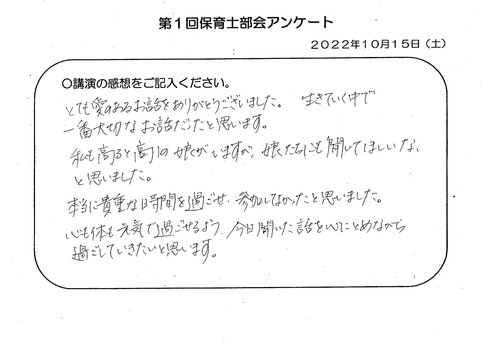 第1回保育士部会アンケート
2022年10月15日（土）
〇講演の感想をご記入ください。
とても愛のあるお話をありがとうございました。 生きていく中で
一番大切なお話だったと思います。
私も高3と高1の娘がいますが、娘たちにも聞いてほしいな、
と思いました。
本当に貴重な時間を過ごせ、参加してよかったと思いました。
心も体も元気で過ごせるよう、今日聞いた話を心にとめながら
過ごしていきたいと思います。